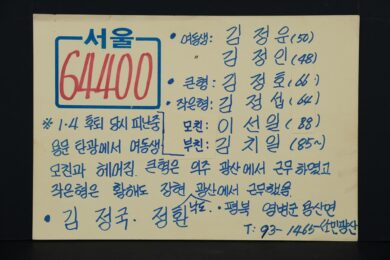 서울
64400
• 여동생: 김정운 (50)
" 김정인 (48)
• 큰형: 김정호 (66)
• 작은형: 김정섭 (64)
※ 1·4 후퇴 당시 피난중
모친: 이선일 (88)
용문 탄광에서 여동생
부친: 김치일 (85~)
모친과 헤어짐. 큰형은 의주 광산에서 근무하였고
작은형은 황해도 장현 광산에서 근무했음
• 김정국. 정환
• 평북 영변군 용산면
T: 93-1465